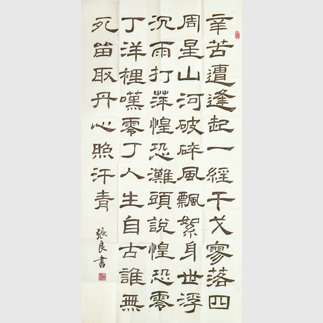 辛苦遭逢起一經干戈寥落四
周星山河破碎風飄絮身世浮
沉雨打萍惶恐灘頭說惶恐零
丁洋裡嘆零丁人生自古誰無
死留取丹心照汗青
張良書